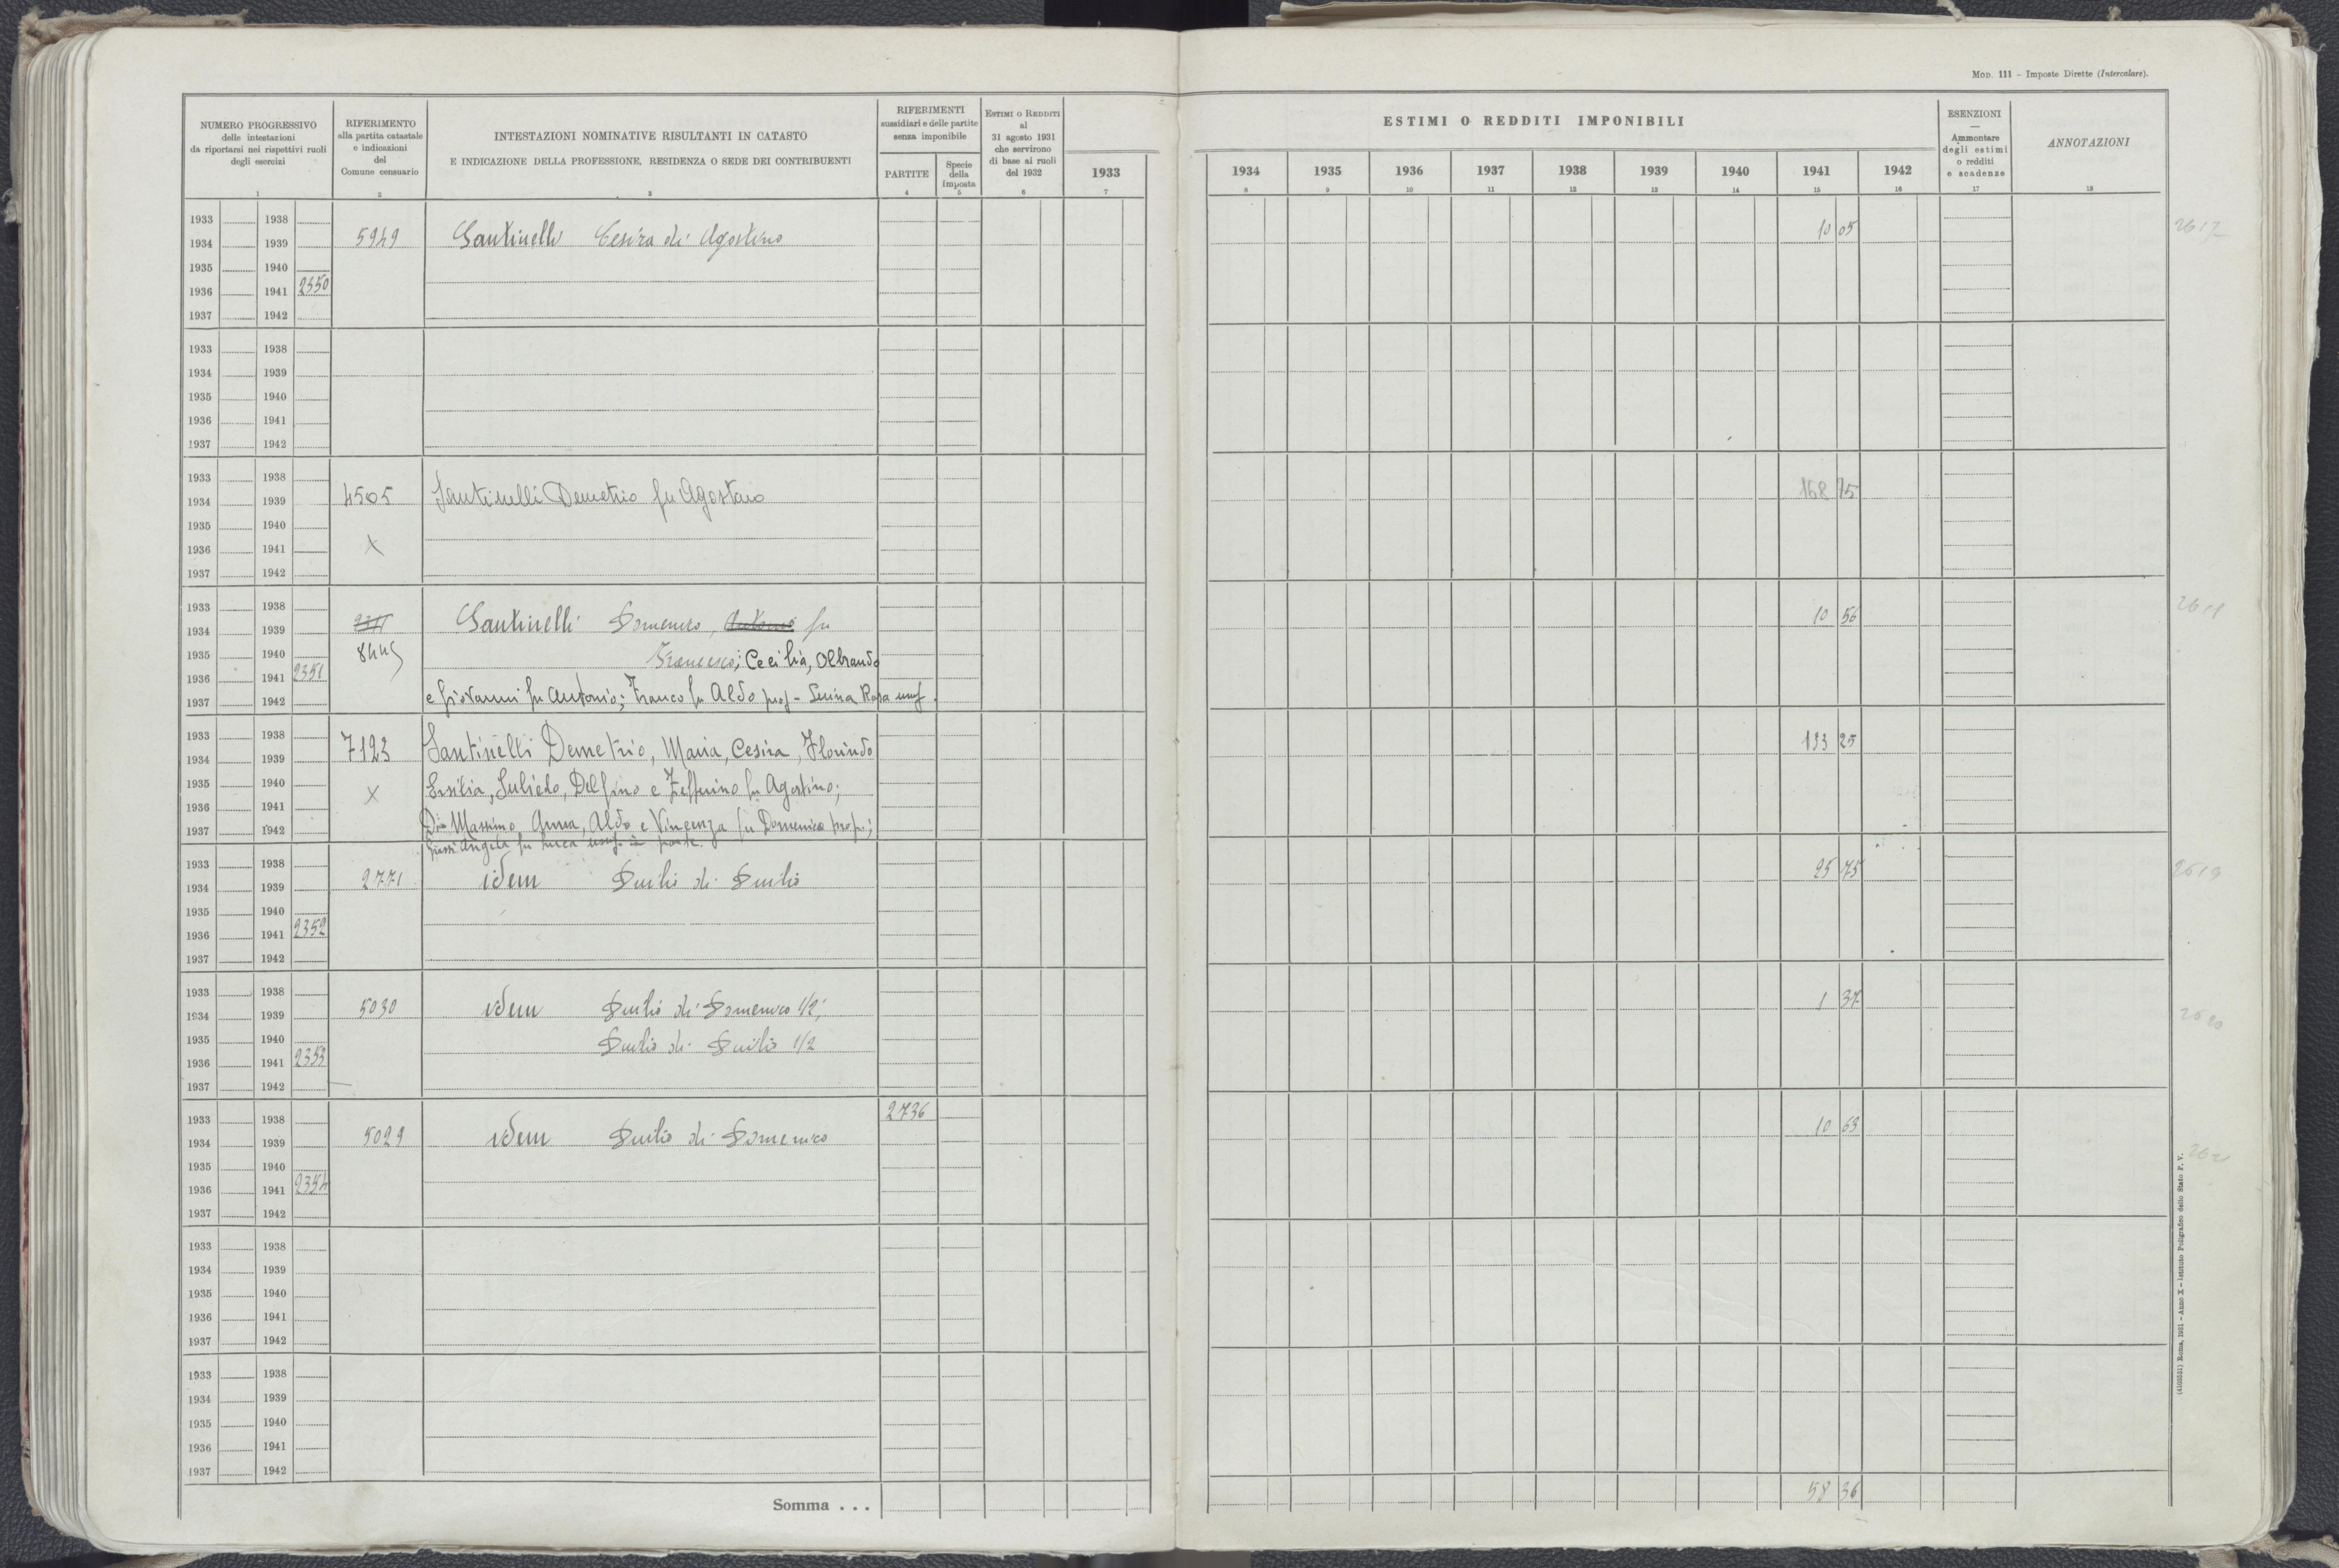 MOD. 111 - Imposte Dirette (Intercalare).
NUMERO PROGRESSIVO
delle intestazioni
da riportarsi nei rispettivi ruoli
degli esercizi
1
RIFERIMENTO
alla partita catastale
e indicazioni
del
Comune censuario
2
INTESTAZIONI NOMINATIVE RISULTANTI IN CATASTO
E INDICAZIONE DELLA PROFESSIONE, RESIDENZA O SEDE DEI CONTRIBUENTI
3
RIFERIMENTI
sussidiari e delle partite
senza imponibile
PARTITE
4
Specie
della
imposta
5
ESTIMI O REDDITI
al
31 agosto 1931
che servirono
di base ai ruoli
del 1932
6
1933
7
ESTIMI O REDDITI IMPONIBILI
1934 1935 1936 1937 1938 1939 1940 1941 1942
8 9 10 11 12 13 14 15 16
ESENZIONI
—
Ammontare
degli estimi
o redditi
e scadenze
17
ANNOTAZIONI
18
1933 1938
1934 1939 5949 Santinelli Cesira di Agostino 10 05 2617
1935 1940
1936 1941 2350
1937 1942
1933 1938
1934 1939
1935 1940
1936 1941
1937 1942
1933 1938
1934 1939 4505 Santinelli Demetrio fu Agostino 168 75
1935 1940
1936 1941 X
1937 1942
1933 1938
1934 1939 Santinelli Domenico, Antonio fu 10 56
1935 1940 8445 Francesco; Cecilia, Olbrando
1936 1941 2351
1937 1942 e Giovanni fu Antonio; Franco fu Aldo prop - Rosa usuf.
1933 1938
1934 1939 7123 Santinelli Demetrio, Maria, Cesira, Florindo 133 25
1935 1940 Ersilia, Delfino e Zefferino fu Agostino;
1936 1941 X
1937 1942 Massimo, Anna, Aldo e Vincenza fu Domenico propr.;
Angela fu Luca usuf. in parte.
1933 1938
1934 1939 2771 idem Duilio di Duilio 25 75 2619
1935 1940
1936 1941 2352
1937 1942
1933 1938
1934 1939 5030 idem Duilio di Domenico 1/2; 1 37 2620
1935 1940 Duilio di Duilio 1/2
1936 1941 2353
1937 1942
1933 1938 2736
1934 1939 5029 idem Duilio di Domenico 10 63
1935 1940
1936 1941 2354
1937 1942
1933 1938
1934 1939
1935 1940
1936 1941
1937 1942
1933 1938
1934 1939
1935 1940
1936 1941
1937 1942
Somma . . . 58 36
(4103521) Roma, 1931 - Anno X - Istituto Poligrafico dello Stato P. V.